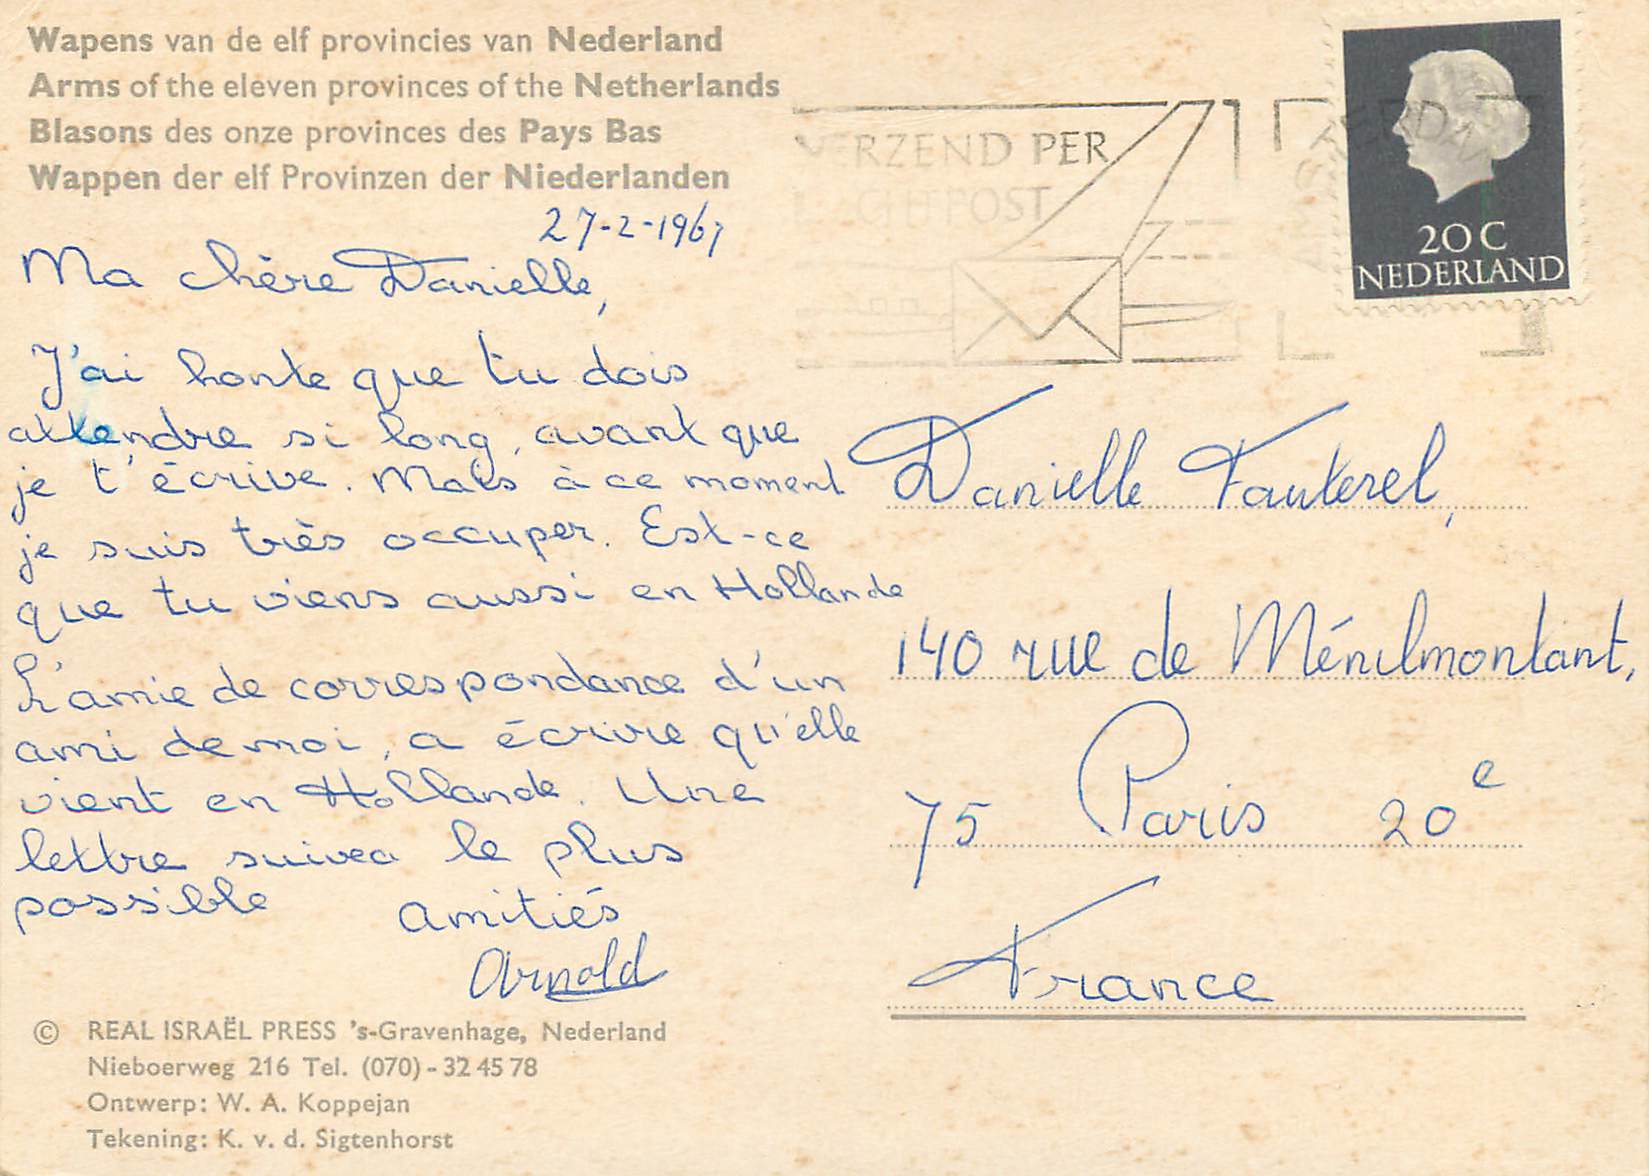 Wapens van de elf provincies van Nederland
Arms of the eleven provinces of the Netherlands
Blasons des onze provinces des Pays Bas
Wappen der elf Provinzen der Niederlanden
27-2-1967
Ma chère Danielle,
J'ai honte que tu dois
attendre si long, avant que
je t'écrive. Mais à ce moment
je suis très occuper. Est-ce
que tu viens aussi en Hollande
L'amie de correspondance d'un
ami de moi, a écrire qu'elle
vient en Hollande. Une
lettre suivea le plus
possible
amitiés
Arnold
© REAL ISRAËL PRESS 's-Gravenhage, Nederland
Nieboerweg 216 Tel. (070) - 32 45 78
Ontwerp: W. A. Koppejan
Tekening: K. v. d. Sigtenhorst
VERZEND PER
LUCHTPOST
AMSTERDAM
20 C
NEDERLAND
Danielle Fauterel,
140 rue de Ménilmontant,
75 Paris 20e
France